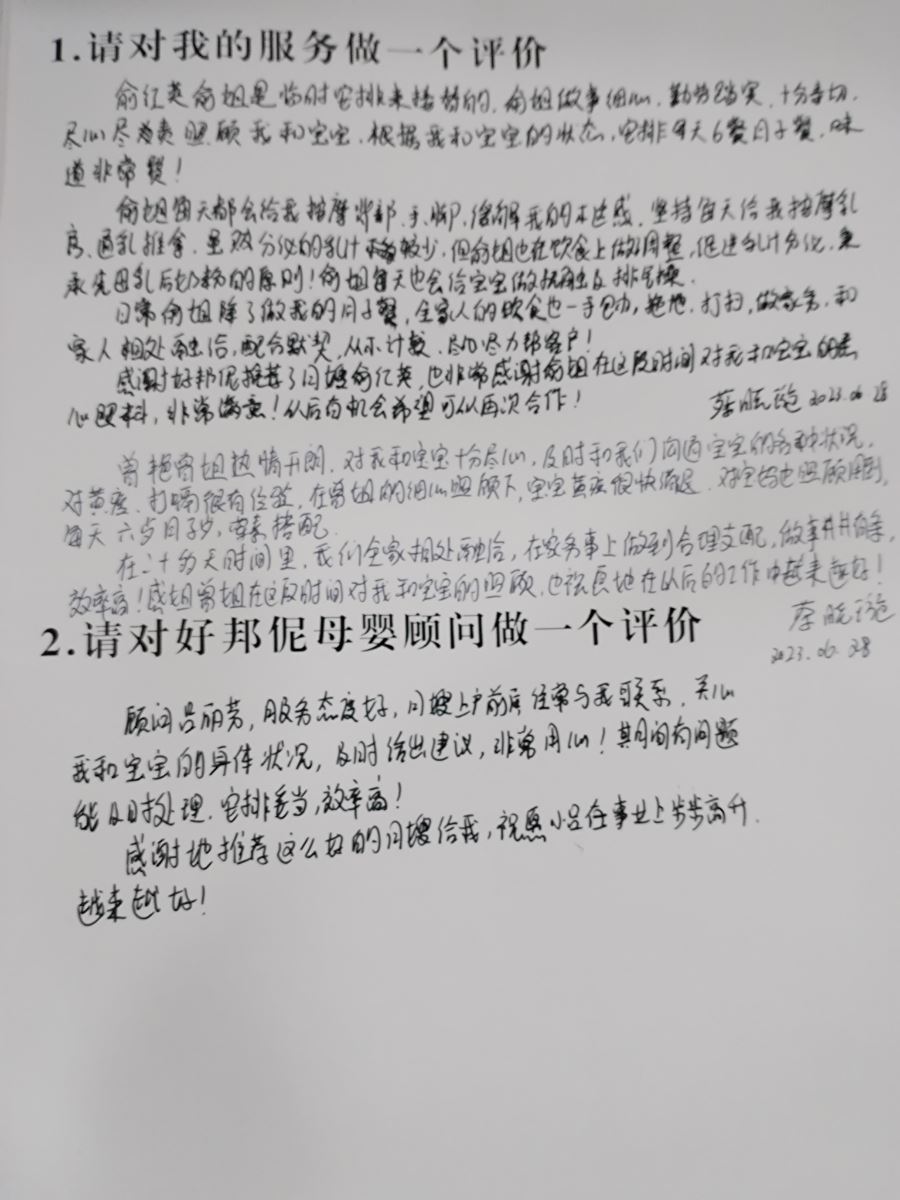 1.请对我的服务做一个评价
俞红英俞姐是临时安排来接替的,俞姐做事细心,勤劳踏实,十分亲切,
尽心尽为类照顾我和宝宝,根据我和宝宝的状态,安排每天6餐月子餐,味
道非常赞!
俞姐每天都会给我按摩背部、手、脚,缓解我的不适感,坚持每天给我按摩乳
房、通乳推拿,虽致分泌的乳汁较少,但俞姐也在饮食上做调整,促进乳汁分泌,秉
承先母乳后奶粉的原则!俞姐每天也会给宝宝做抚触及排气操.
日常俞姐除了做我的月子餐,全家人的饮食也一手包办,拖地,打扫,做家务,和
家人相处融洽,配合默契,从不计较,尽心尽力帮客户!
感谢好邦伲推荐了月嫂俞红英,也非常感谢俞姐在这段时间对我和宝宝的悉
心照料,非常满意!以后有机会希望可以再次合作!
2023.06.28
曾艳曾姐热情开朗,对我和宝宝十分尽心,及时和我们沟通宝宝的各种状况,
对黄疸、打嗝很有经验,在曾姐的细心照顾下,宝宝黄疸很快消退,对宝妈也照顾周到,
每天六步月子,荤素搭配.
在二十多天时间里,我们全家相处融洽,在家务事上做到合理支配,做事井井有条,
效率高!感姐曾姐在这段时间对我和宝宝的照顾,也祝愿她在以后的工作中越来越好!
2023.06.28
2.请对好邦伲母婴顾问做一个评价
顾问吕丽芳,服务态度好,月嫂上户前后经常与我联系,关心
我和宝宝的身体状况,及时给出建议,非常用心!其间有问题
能及时处理,安排妥当,效率高!
感谢她推荐这么好的月嫂给我,祝愿小吕在事业上步步高升,
越来越好!